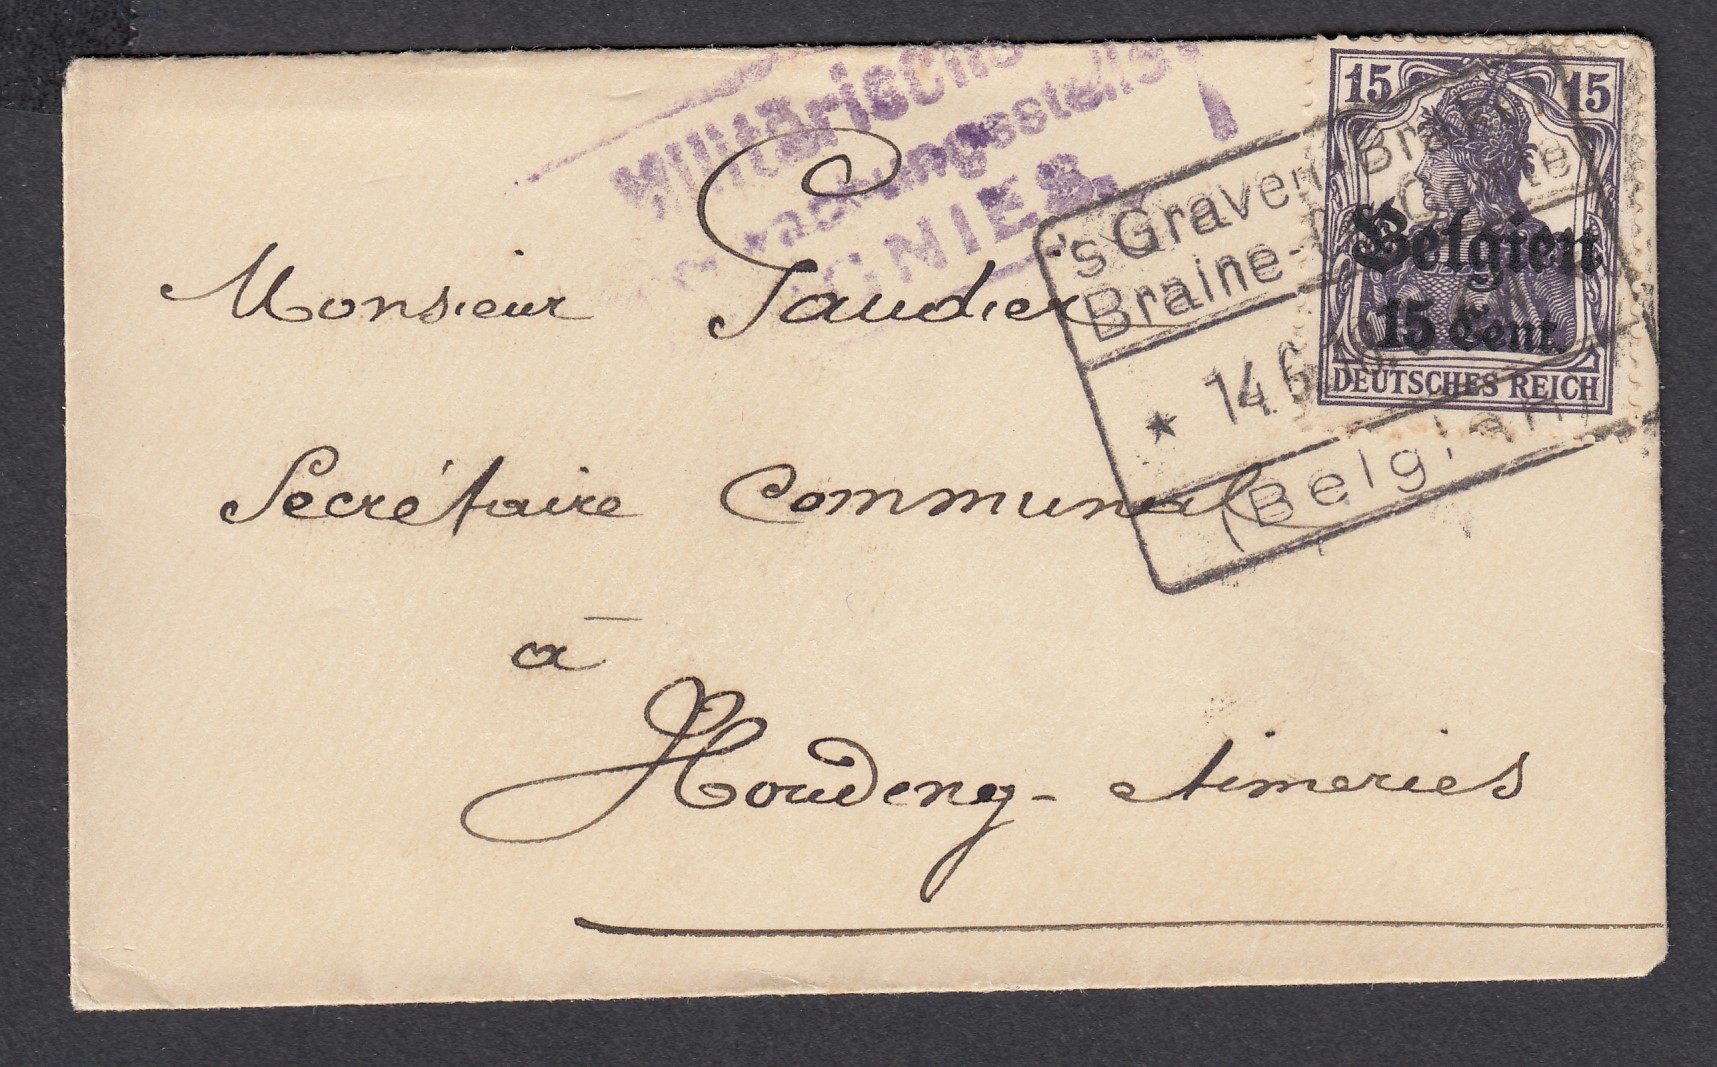 Militärische
GNIES.
15 15
Belgien
15 Cent.
DEUTSCHES REICH
's Graven Brakel
Braine-le-Comte
* 14.6.
(Belgien)
Monsieur Gaudier
Secrétaire Communal
à
Houdeng-Aimeries